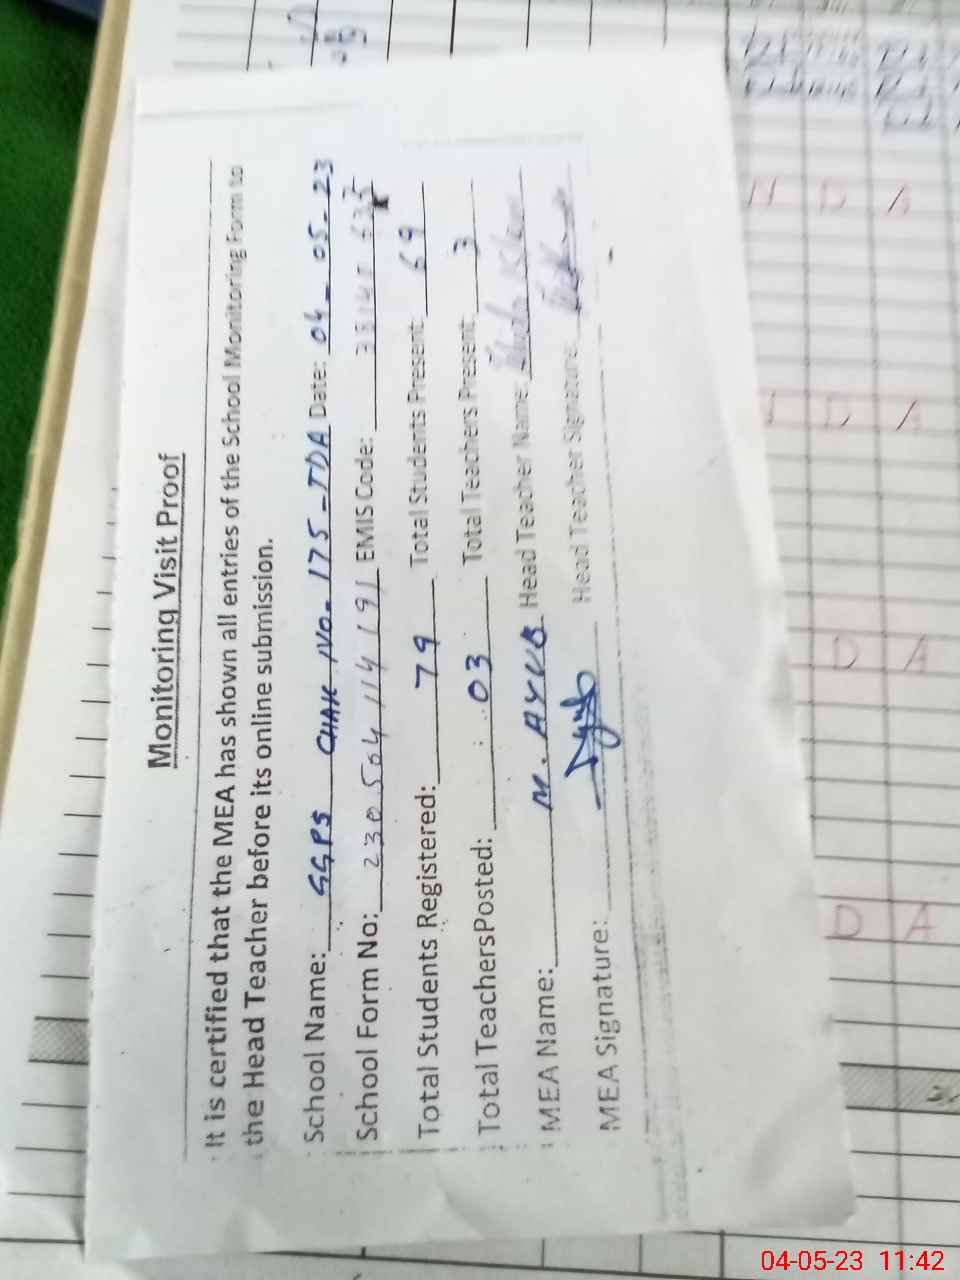 Monitoring Visit Proof
It is certified that the MEA has shown all entries of the School Monitoring Form to
the Head Teacher before its online submission.
School Name: GGPS CHAK NO. 175-TDA Date: 04-05-23
School Form No: 230504114191 EMIS Code:
Total Students Registered: 79 Total Students Present: 69
Total TeachersPosted: 03 Total Teachers Present: 3
MEA Name: M. AYUB Head Teacher Name:
MEA Signature: Head Teacher Signature:
D A
D A
D A
D A
04-05-23 11:42